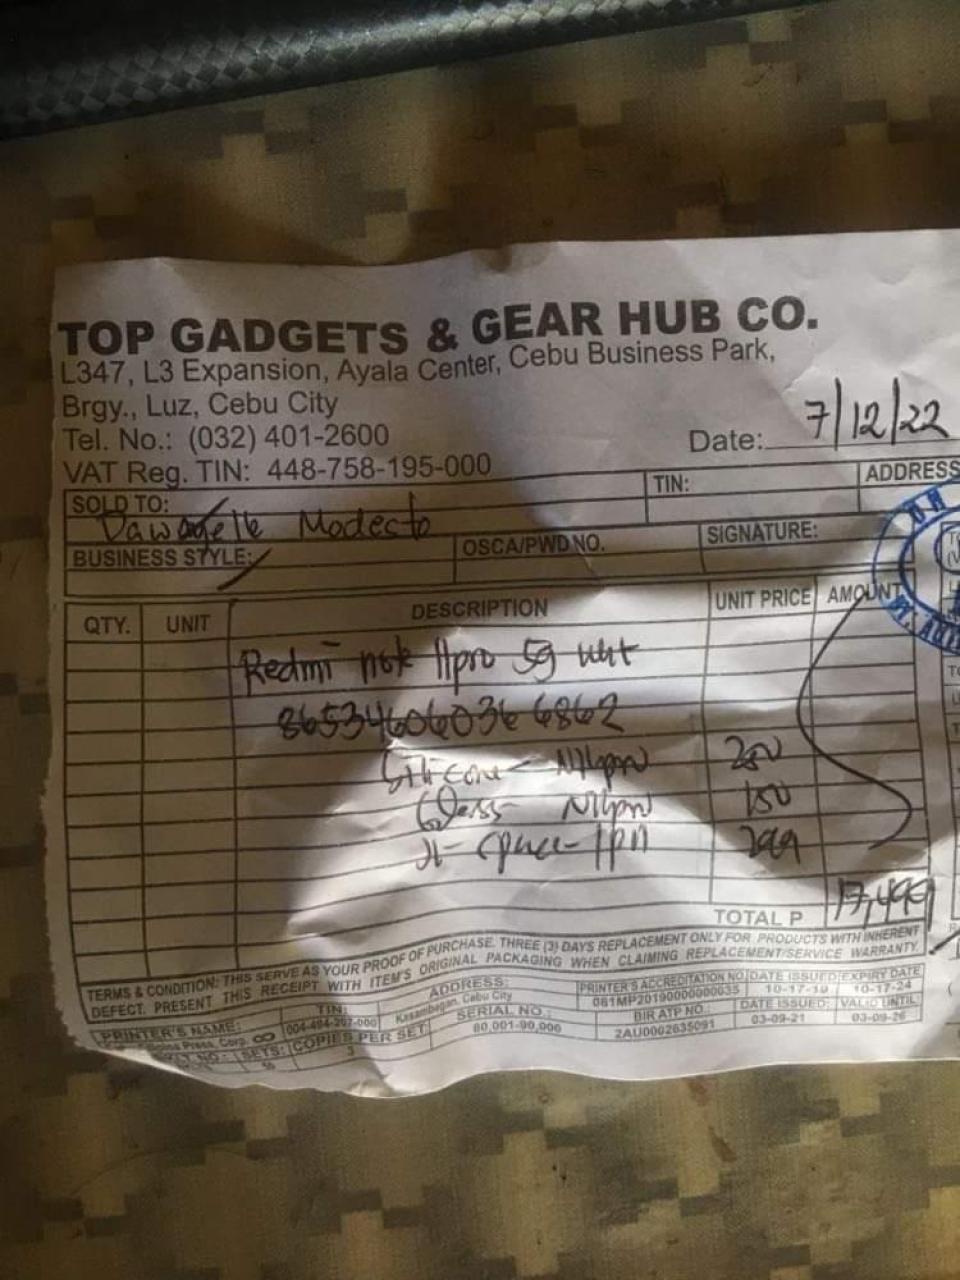 TOP GADGETS & GEAR HUB CO.
L347, L3 Expansion, Ayala Center, Cebu Business Park,
Brgy., Luz, Cebu City
Tel. No.: (032) 401-2600
Date: 7/12/22
VAT Reg. TIN: 448-758-195-000
SOLD TO: Modesto
TIN:
ADDRESS
BUSINESS STYLE:
OSCA/PWD NO.
SIGNATURE:
QTY. UNIT DESCRIPTION UNIT PRICE AMOUNT
Redmi note 11pro 5g wht
865346060366862
Silicone 200
Glass 150
299
TOTAL P 17,499
TERMS & CONDITION: THIS SERVE AS YOUR PROOF OF PURCHASE. THREE (3) DAYS REPLACEMENT ONLY FOR PRODUCTS WITH INHERENT
DEFECT. PRESENT THIS RECEIPT WITH ITEM'S ORIGINAL PACKAGING WHEN CLAIMING REPLACEMENT/SERVICE WARRANTY.
PRINTER'S NAME: TIN: ADDRESS: PRINTER'S ACCREDITATION NO. DATE ISSUED: EXPIRY DATE
Press, Corp. Kasambagan, Cebu City 10-17-19 10-17-24
SETS: COPIES PER SET SERIAL NO.: BIR ATP NO.: DATE ISSUED: VALID UNTIL
3 80,001-90,000 2AU0002635091 03-09-21 03-09-26